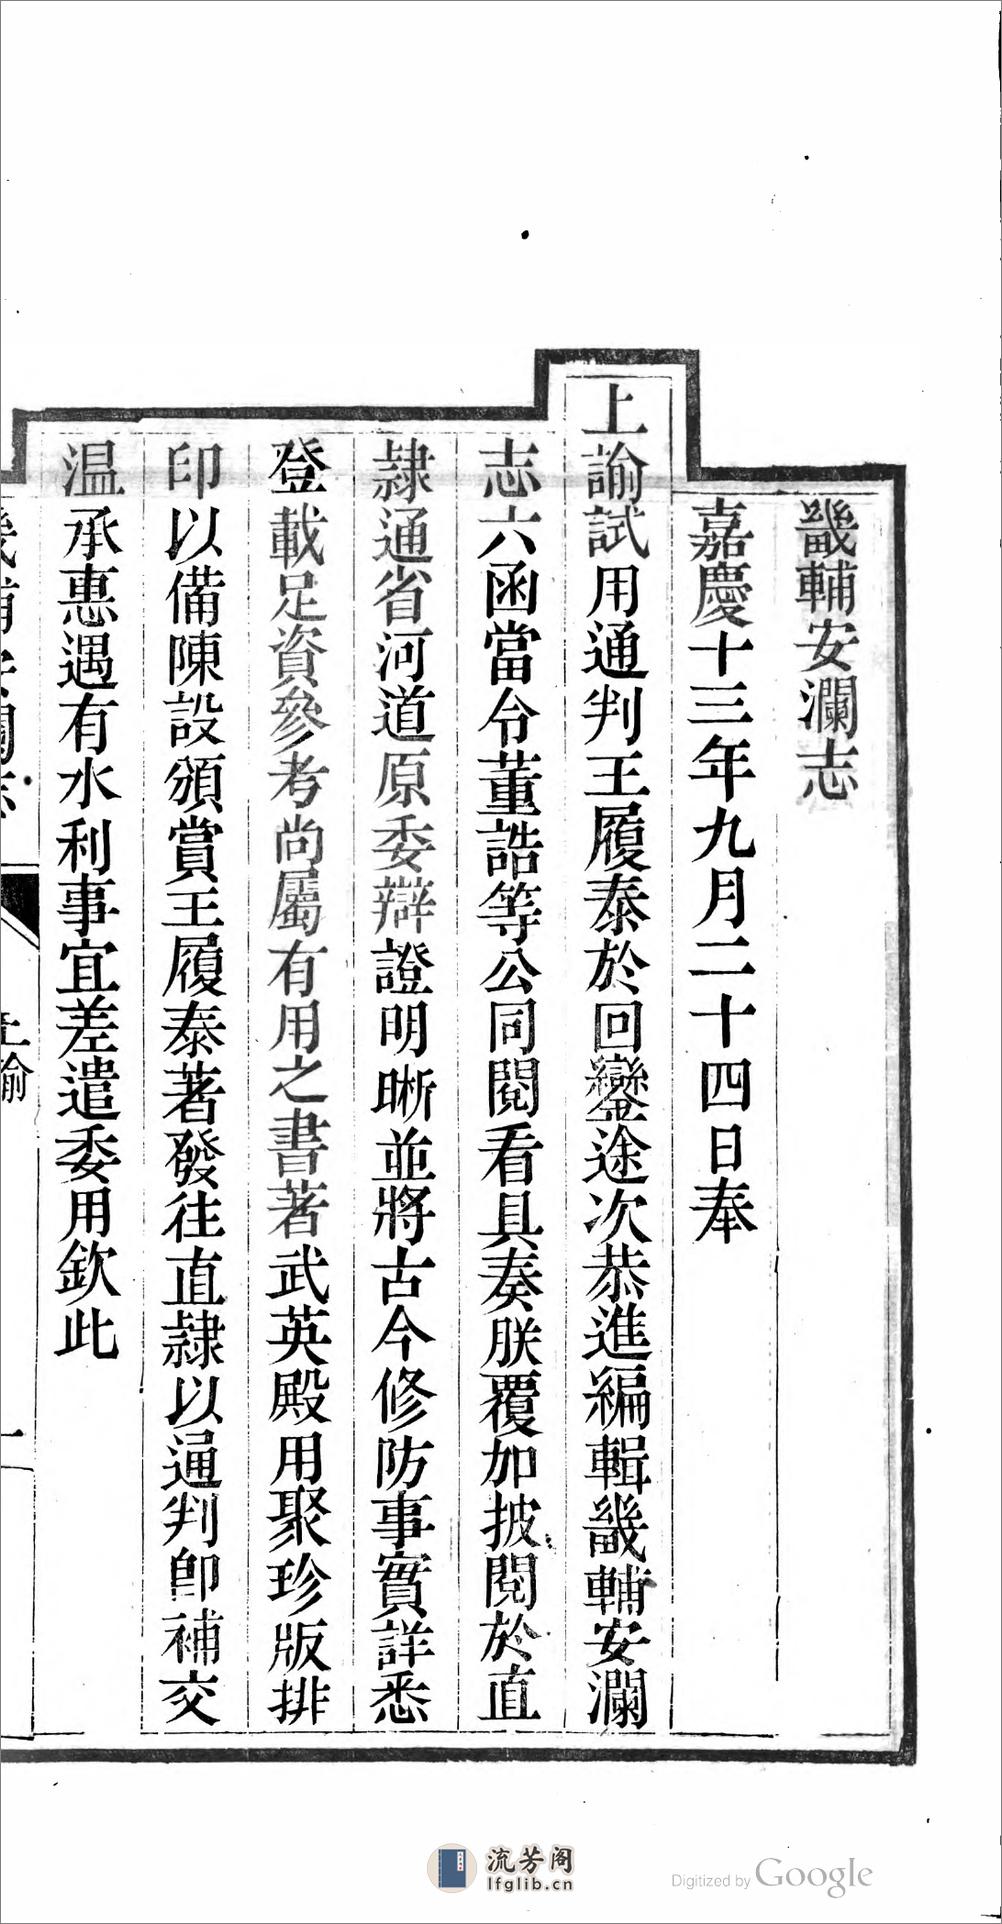 畿輔安瀾志
嘉慶十三年九月二十四日奉
上諭試用通判王履泰於回鑾途次恭進編輯畿輔安瀾
志六函當令董誥等公同閱看具奏朕覆加披閱於直
隸通省河道原委辯證明晰並將古今修防事實詳悉
登載足資參考尚屬有用之書著武英殿用聚珍版排
印以備陳設頒賞王履泰著發往直隸以通判卽補交
温承惠遇有水利事宜差遣委用欽此
畿輔安瀾志
上諭
一
流芳阁
lfglib.cn
Digitized by Google